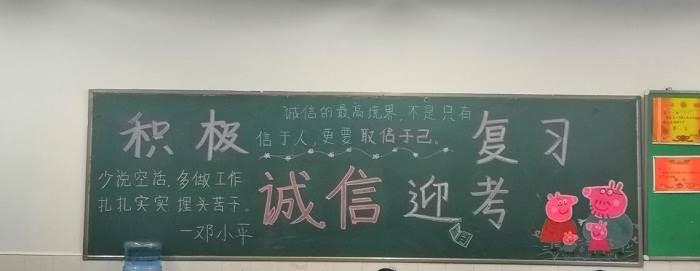 积极
诚信的最高境界,不是只有
信于人,更要取信于己。
复习
少说空话,多做工作
扎扎实实 埋头苦干。
—邓小平
诚信
迎考